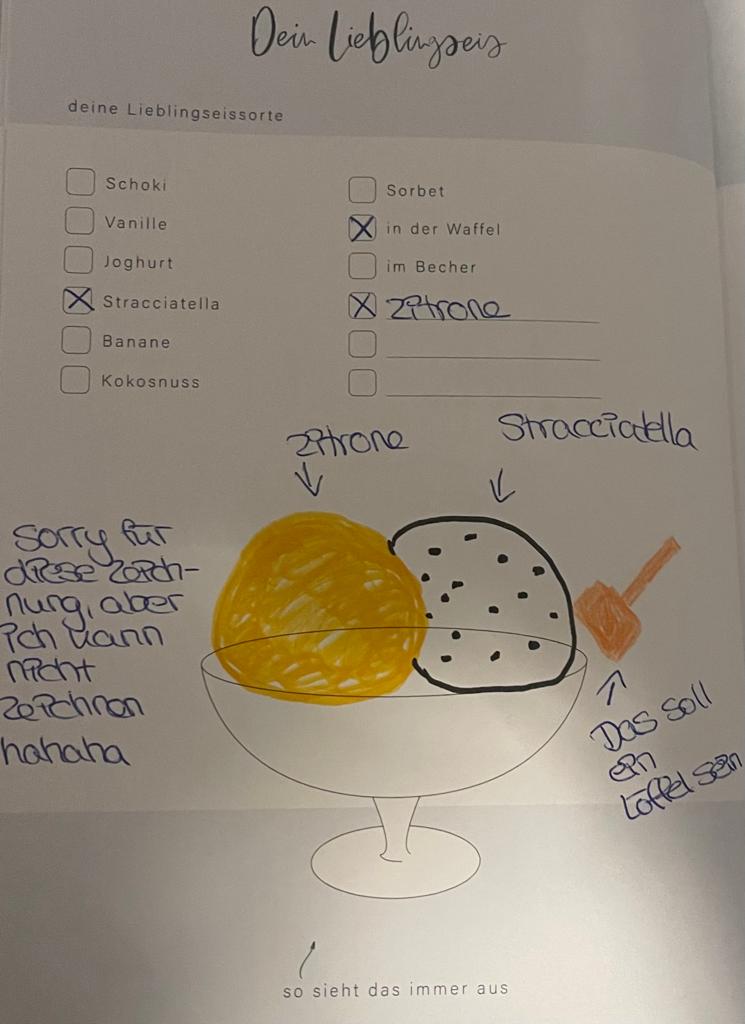 Dein Lieblingseis
deine Lieblingseissorte
Schoki
Vanille
Joghurt
Stracciatella
Banane
Kokosnuss
Sorbet
in der Waffel
im Becher
Zitrone
Zitrone
Stracciatella
Sorry für
diese Zeich-
nung, aber
ich kann
nicht
zeichnen
hahaha
Das soll
ein
Löffel sein
so sieht das immer aus